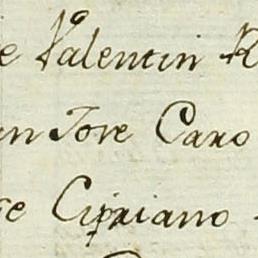 e Valentin R
n Jose Caro
se Cipriano